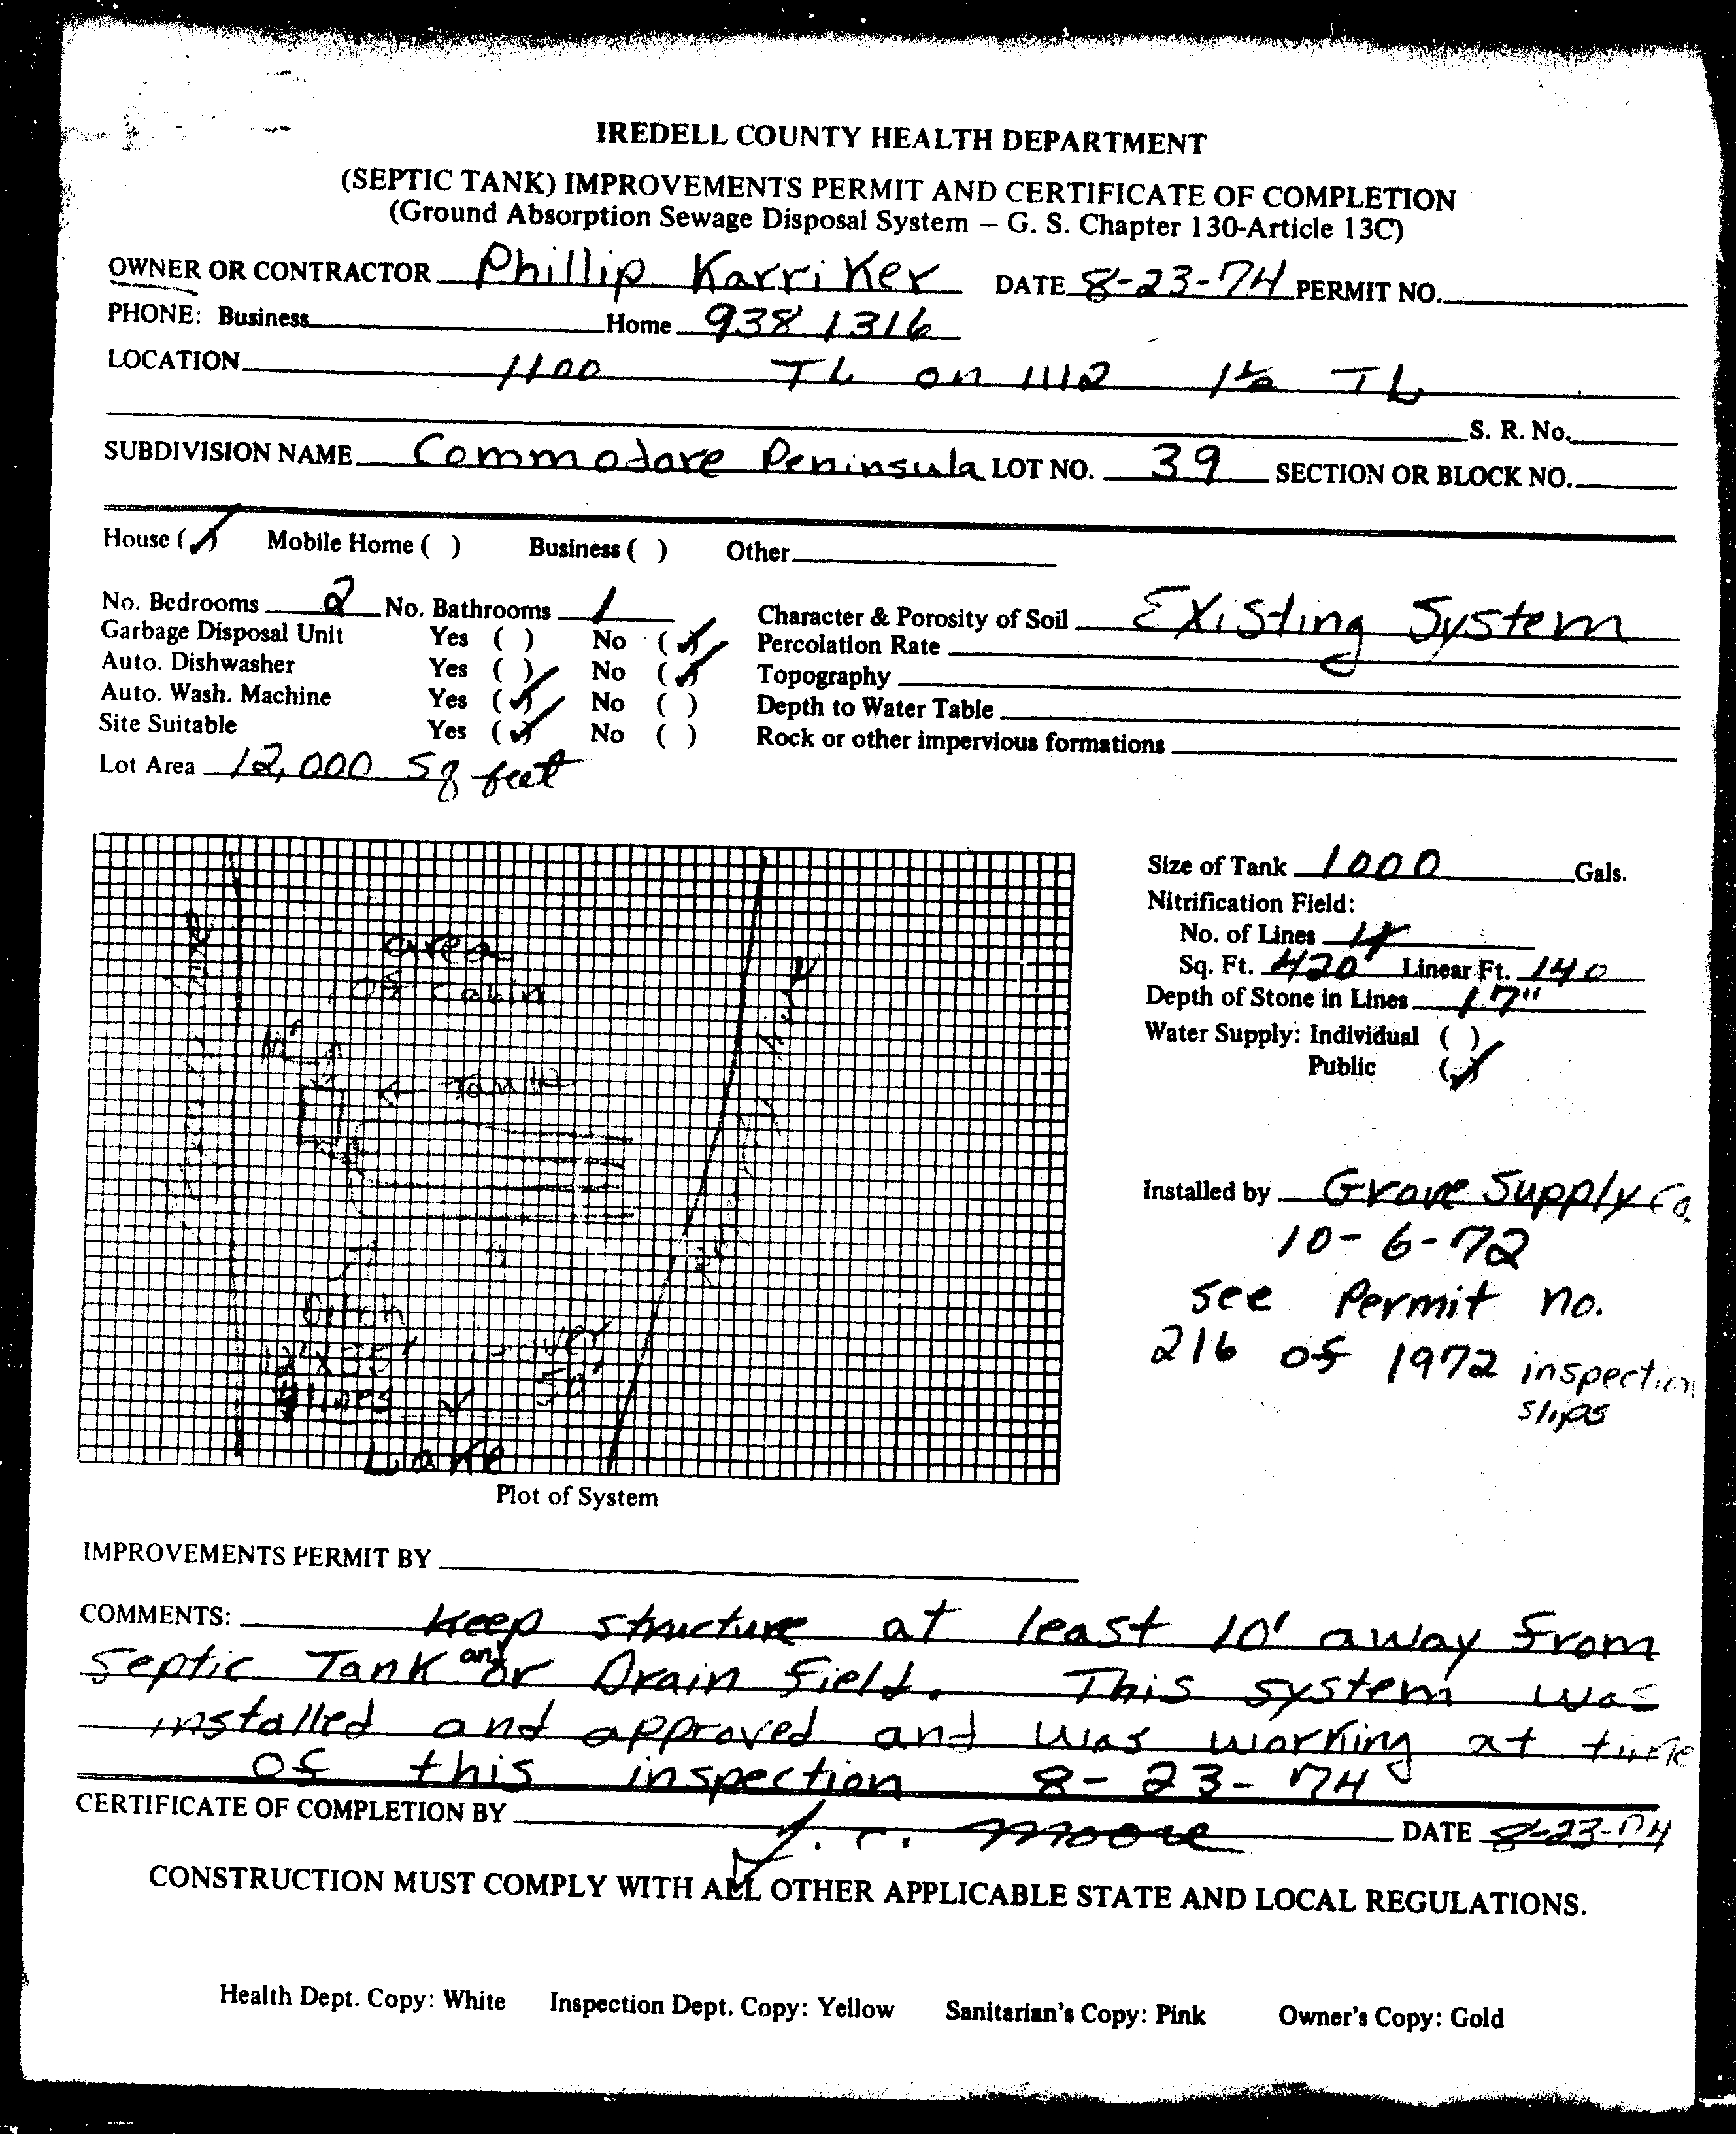 IREDELL COUNTY HEALTH DEPARTMENT
(SEPTIC TANK) IMPROVEMENTS PERMIT AND CERTIFICATE OF COMPLETION
(Ground Absorption Sewage Disposal System – G. S. Chapter 130-Article 13C)
OWNER OR CONTRACTOR Phillip Karriker DATE 8-23-74 PERMIT NO.
PHONE: Business Home 938 1316
LOCATION 1100 TL on 1112 1½ TL
S. R. No.
SUBDIVISION NAME Commodore Peninsula LOT NO. 39 SECTION OR BLOCK NO.
House (✓) Mobile Home ( ) Business ( ) Other
No. Bedrooms 2 No. Bathrooms 1 Character & Porosity of Soil Existing System
Garbage Disposal Unit Yes ( ) No (✓) Percolation Rate
Auto. Dishwasher Yes ( ) No (✓) Topography
Auto. Wash. Machine Yes (✓) No ( ) Depth to Water Table
Site Suitable Yes (✓) No ( ) Rock or other impervious formations
Lot Area 12,000 sq feet
area
of cabin
← Tank
Lake
Plot of System
Size of Tank 1000 Gals.
Nitrification Field:
No. of Lines
Sq. Ft. 420' Linear Ft. 140
Depth of Stone in Lines 17"
Water Supply: Individual ( )
Public (✓)
Installed by Grove Supply Co.
10-6-72
see Permit no.
216 of 1972 inspection
slips
IMPROVEMENTS PERMIT BY
COMMENTS: Keep structure at least 10' away from
septic Tank and or Drain field. This system was
installed and approved and was working at time
of this inspection 8-23-74
CERTIFICATE OF COMPLETION BY J. C. Moore DATE 8-23-74
CONSTRUCTION MUST COMPLY WITH ALL OTHER APPLICABLE STATE AND LOCAL REGULATIONS.
Health Dept. Copy: White Inspection Dept. Copy: Yellow Sanitarian's Copy: Pink Owner's Copy: Gold